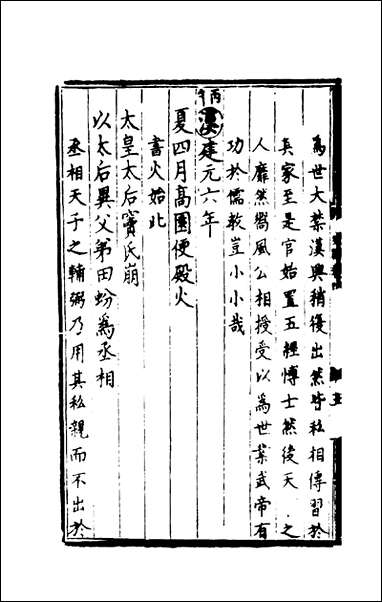 為世大禁漢興稍復出然皆私相傳習於
其家至是官始置五經博士然後天之
人靡然嚮風公相授受以為世業武帝有
功於儒教豈小小哉
丙午漢建元六年
夏四月高園便殿火
書火始此
太皇太后竇氏崩
以太后異父弟田蚡為丞相
丞相天子之輔弼乃用其私親而不出於